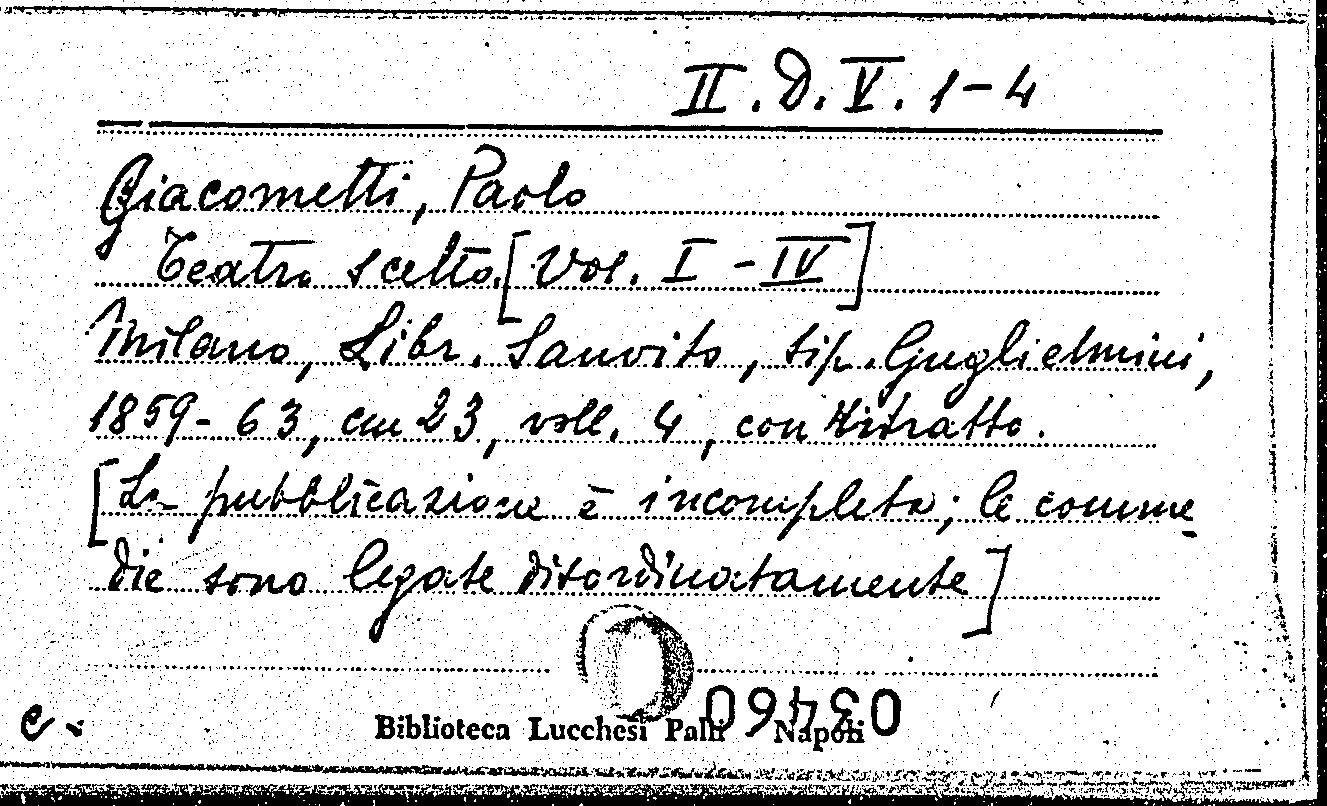 II. D. V. 1-4
Giacometti, Paolo
Teatro scelto. [Vol. I - IV]
Milano, Libr. Sanvito, tip. Guglielmini,
1859-63, cm 23, voll. 4, con ritratto.
[La pubblicazione è incompleta; le comme
die sono legate disordinatamente]
e.
Biblioteca Lucchesi Palli Napoli